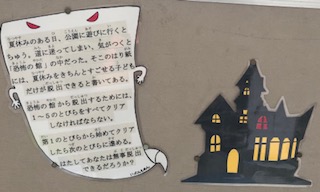 夏休みのある日、公園に遊びに行くと
ちゅう、道に迷ってしまい、気がつくと
「恐怖の館」の中だった。そこのはり紙
には、夏休みをきちんとすごせる子ども
だけが脱出できると書いてある。
恐怖の館から脱出するためには、
1～5のとびらをすべてクリア
しなければならない。
第1のとびらから始めてクリア
したら次のとびらに進める。
はたしてあなたは無事脱出
できるだろうか？